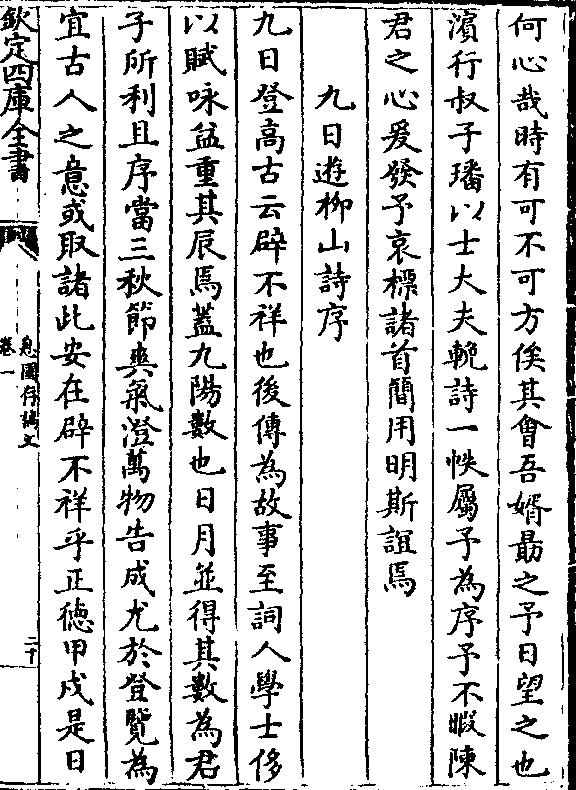 何心哉時有可不可方俟其會吾婿勗之予日望之也
濵行叔子璠以士大夫輓詩一帙屬予為序予不暇陳
君之心爰發予哀標諸首簡用明斯誼焉
九日遊栁山詩序
九日登高古云辟不祥也後傳為故事至詞人學士侈
以賦咏益重其辰焉蓋九陽數也日月並得其數為君
子所利且序當三秋節爽氣澄萬物告成尤於登覽為
宜古人之意或取諸此安在辟不祥乎正徳甲戌是日
欽定四庫全書
息園存稿文
卷一
二十